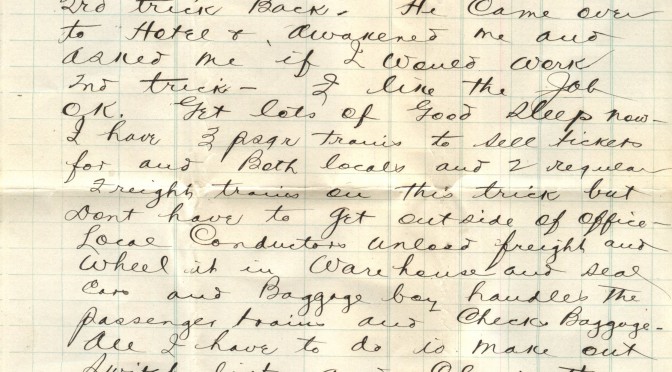 3rd trick Back. He Came over
to Hotel & awakened me and
asked me if I would work
2nd trick - I like the Job
OK. Get lots of Good sleep now -
I have 3 psgr trains to sell tickets
for and Both locals and 2 regular
Freight trains on this trick but
Dont have to get outside of office -
Local Conductors unload freight and
Wheel it in Warehouse and seal
Cars and Baggage boy handles the
passenger trains and Checks Baggage.
All I have to do is make out
Switch lists and